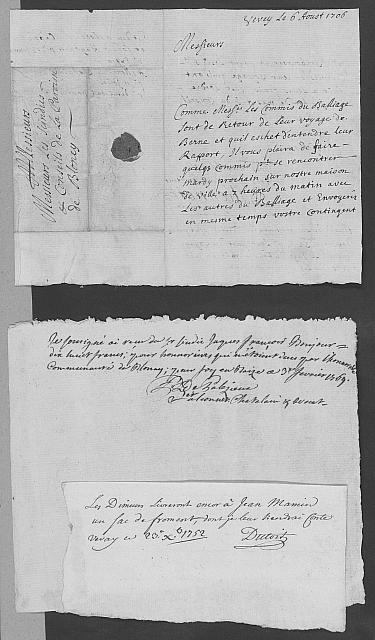 Vevey Le 6 Aoust 1706
Messieurs
Comme Mess.rs Les Commis du Balliage
sont de Retour de Leur voyage de
Berne et quil eschet d'entendre Leur
Raport, Il vous plaira de faire
quelqs Commis p.r se rencontrer
Mardy prochain sur nostre maison
de ville a 7 heures du matin avec
Les autres du Balliage et Envoyeres
en mesme temps vostre Contingent
A Messieurs
Messieurs Les
& Conseils de La
de Bloney
Je soussigné ai reçu du Sr Jaques François Bonjour
dix huict francs, pour honnoraires qui m'étoient dus par
Communauté de Blonay, 3e fevrier 1769.
Chatelain
Les Dimeurs Livreront encor à Jean Mamin
un sac de froment, dont je leur tiendrai Conte
Vevay ce 23e Xb 1752 Dutoit